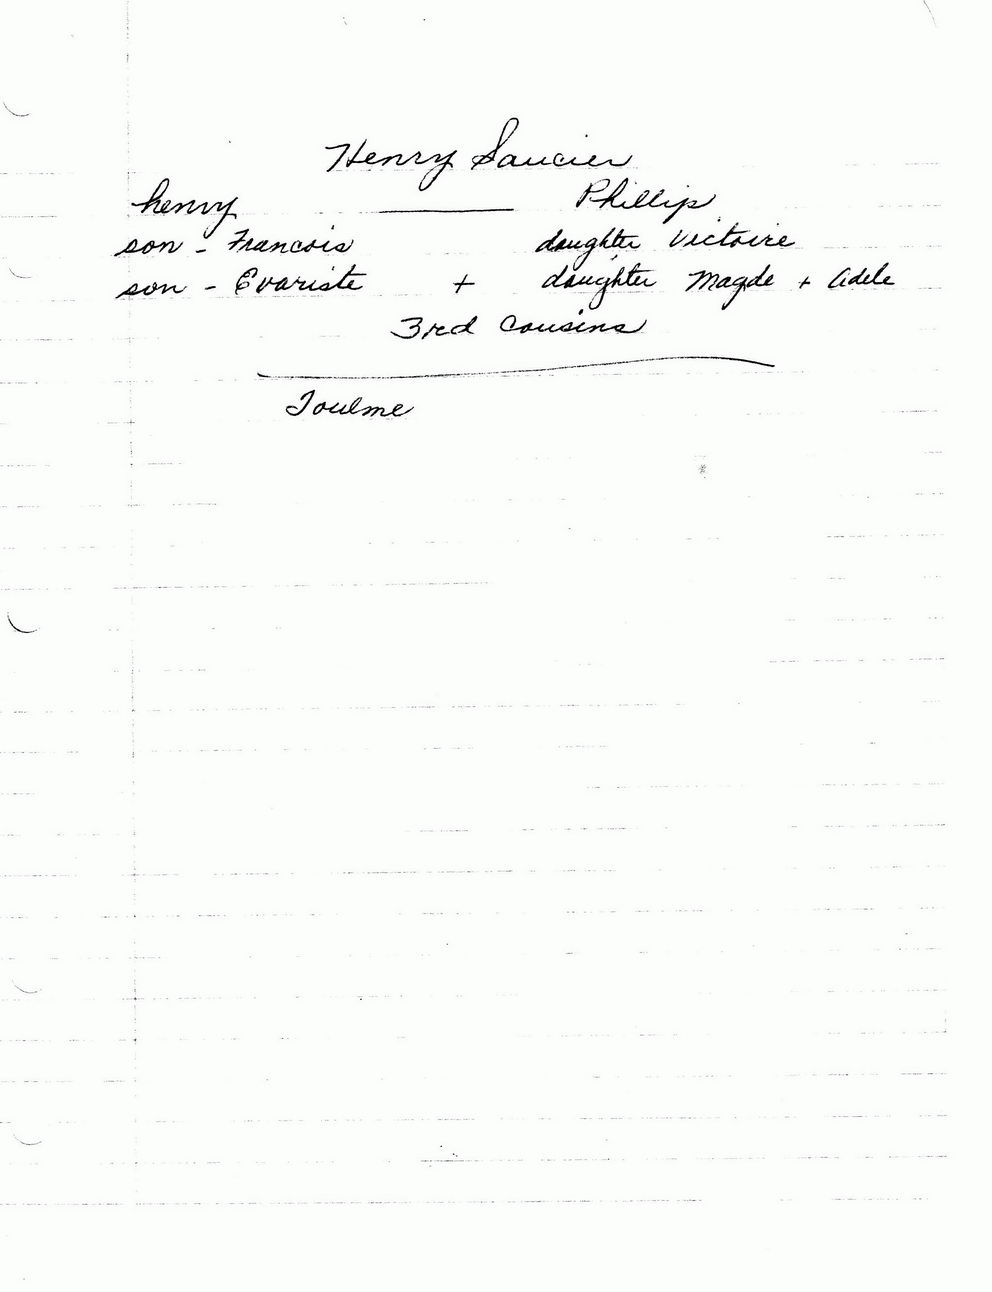 Henry Saucier
henry ——— Phillip
son - Francois daughter Victoire
son - Evariste + daughter Magde + Adele
3rd Cousins
Toulme